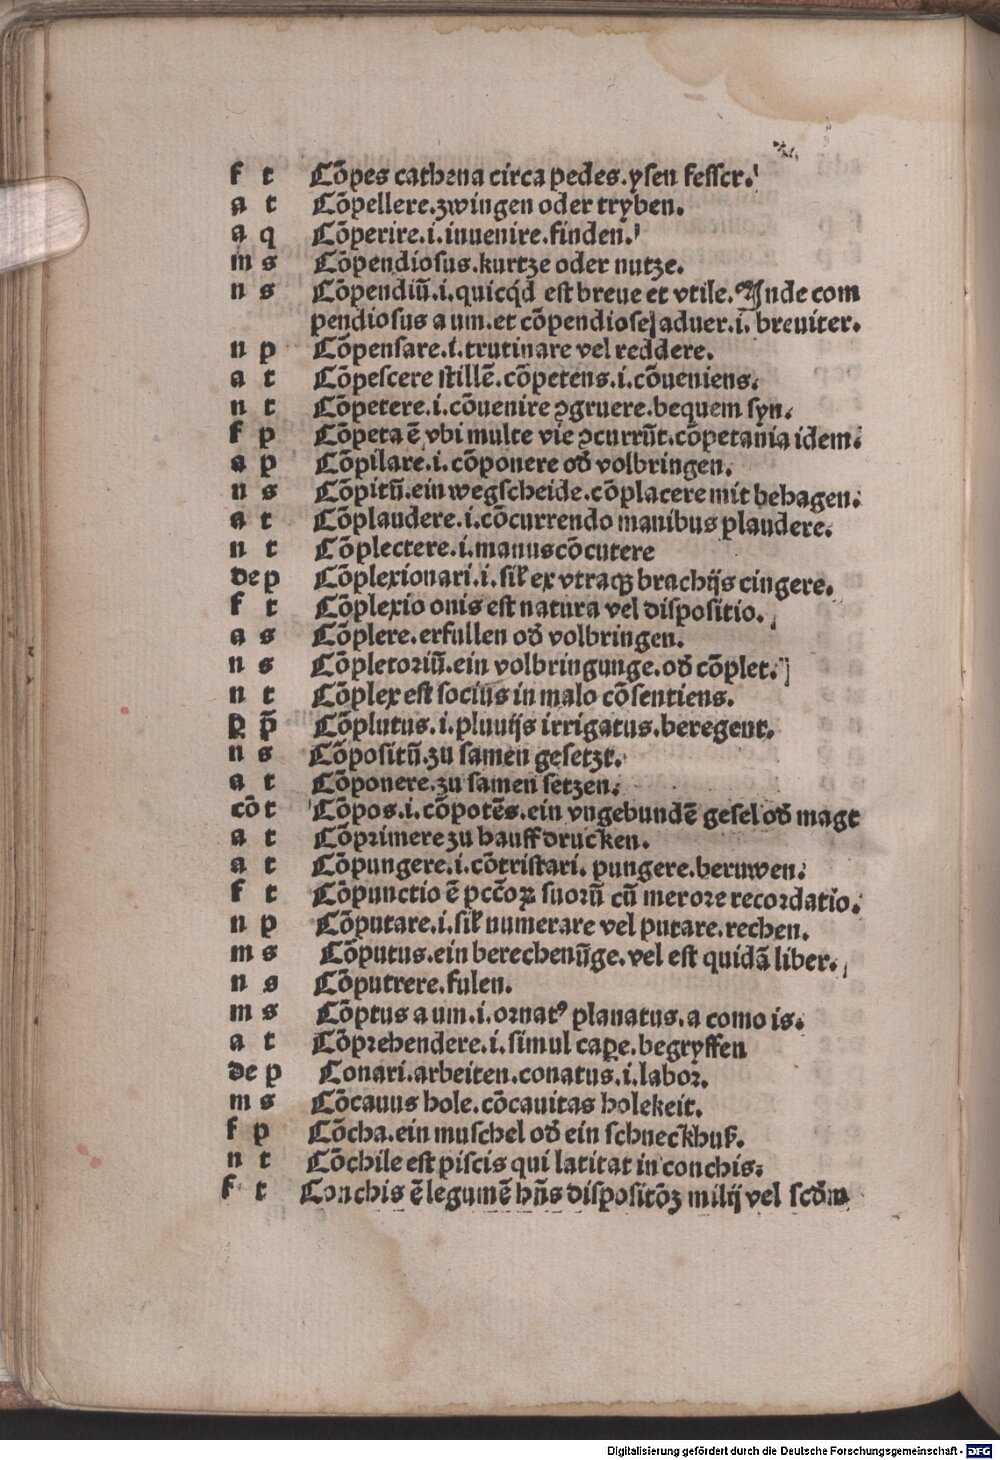 f t Cōpes cathena circa pedes.ysen fesser.
a t Cōpellere.zwingen oder tryben.
a q Cōperire.i.inuenire.finden.
m s Cōpendiosus.kurtze oder nutze.
n s Cōpendiū.i.quicq́d est breue et vtile.Inde com
pendiosus a um.et cōpendiose aduer.i. breuiter.
n p Cōpensare.i.trutinare vel reddere.
a t Cōpescere stillē.cōpetens.i.cōueniens.
n t Cōpetere.i.cōuenire ꝯgruere.bequem syn.
f p Cōpeta ē vbi multe vie ꝯcurrūt.cōpetania idem.
a p Cōpilare.i.cōponere od̕ volbringen.
n s Cōpitū.ein wegscheide.cōplacere mit behagen.
a t Cōplaudere.i.cōcurrendo manibus plaudere.
n t Cōplectere.i.manus cōcutere
de p Cōplexionari.i.sil̕ ex vtraqꝫ brachijs cingere.
f t Cōplexio onis est natura vel dispositio.
a s Cōplere.erfullen od̕ volbringen.
n s Cōpletoriū.ein volbringunge.od̕ cōplet.
n t Cōplex est socius in malo cōsentiens.
ꝑ p̄ Cōplutus.i.pluuijs irrigatus.beregent.
n s Cōpositū.zu samen gesetzt.
a t Cōponere.zu samen setzen.
cō t Cōpos.i.cōpotēs.ein vngebundē gesel od̕ magt
a t Cōprimere zu hauff drucken.
a t Cōpungere.i.cōtristari. pungere.beruwen.
f t Cōpunctio ē pccōꝝ suorū cū merore recordatio.
n p Cōputare.i.sil̕ numerare vel putare.rechen.
m s Cōputus.ein berechenūge.vel est quidā liber.
n s Cōputrere.fulen.
m s Cōptus a um.i.ornatꝰ planatus.a como is.
a t Cōprehendere.i.simul caꝑe.begryffen
de p Conari.arbeiten.conatus.i.labor.
m s Cōcauus hole.cōcauitas holekeit.
f p Cōcha.ein muschel od̕ ein schneckhuß.
n t Cōchile est piscis qui latitat in conchis.
f t Conchis ē legumē hn̄s dispositōꝫ milij vel scd̕m
Digitalisierung gefördert durch die Deutsche Forschungsgemeinschaft - DFG